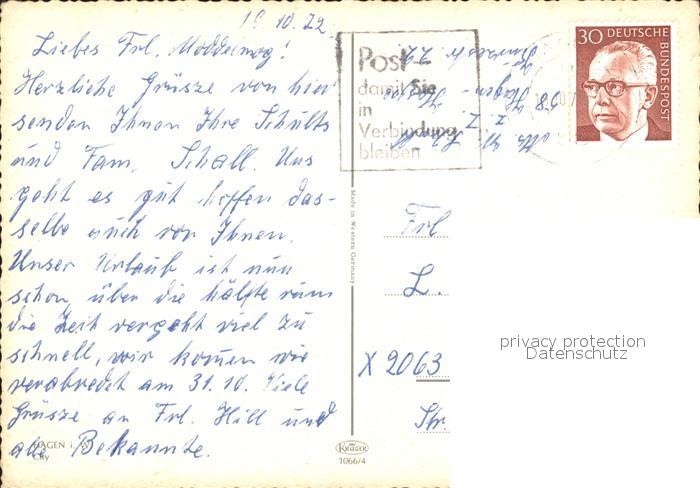 19.10.72.
Liebes Frl. Moddelmog!
Herzliche Grüsze von hier
senden Ihnen Ihre Schults
und Fam. Schall. Uns
geht es gut hoffen das-
selbe auch von Ihnen.
Unser Urlaub ist nun
schon über die hälfte rum
die Zeit vergeht viel zu
schnell, wir komen wie
verabredet am 31.10. Viele
Grüsze an Frl. Hill und
alle Bekannte.
HAGEN i. W.
City
Post
damit Sie
in
Verbindung
bleiben
58 Hagen
30 DEUTSCHE
BUNDESPOST
Made in Western Germany
Frl
L.
X 2063
Str.
KRÜGER
1066/4
privacy protection
Datenschutz